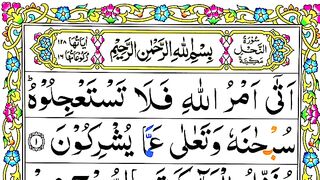 سُورَةُ النَّحْلِ مَكِّيَّةٌ
بِسْمِ اللهِ الرَّحْمٰنِ الرَّحِيْمِ
اٰيَاتُهَا ١٢٨
رُكُوْعَاتُهَا ١٦
اَتٰۤى اَمْرُ اللّٰهِ فَلَا تَسْتَعْجِلُوْهُ ؕ
سُبْحٰنَهٗ وَتَعٰلٰى عَمَّا يُشْرِكُوْنَ ۝١